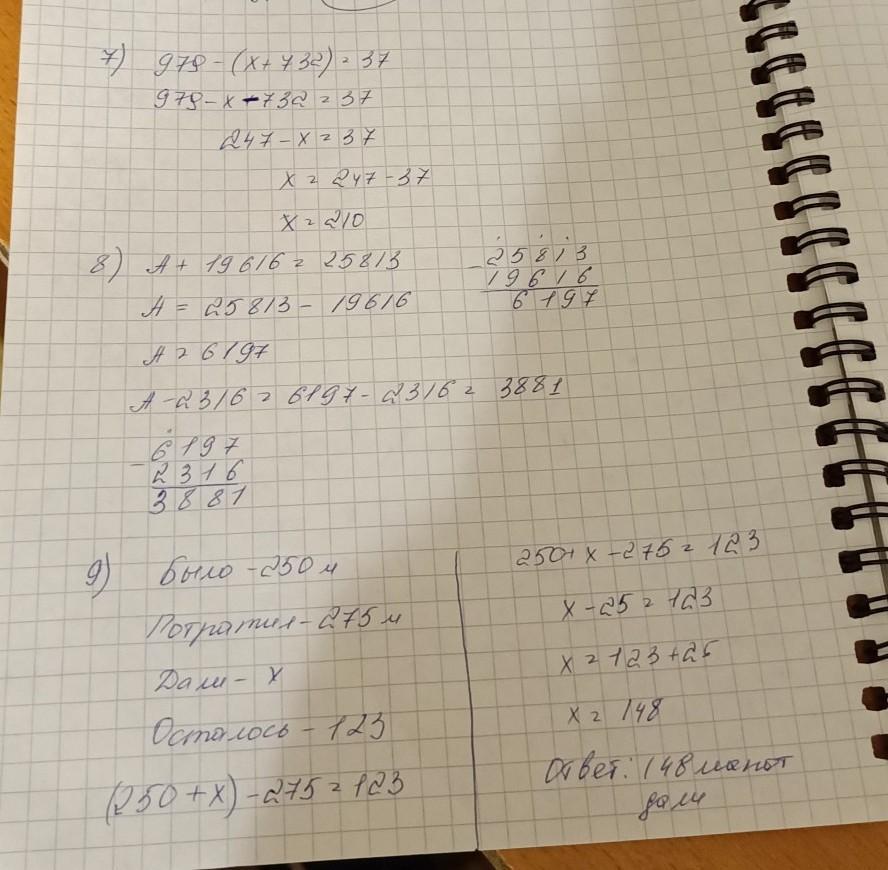 7) 979 - (x + 732) = 37
979 - x - 732 = 37
247 - x = 37
x = 247 - 37
x = 210
8) A + 19616 = 25813
A = 25813 - 19616
A = 6197
A - 2316 = 6197 - 2316 = 3881
- 25813
19616
6197
- 6197
2316
3881
9) Было - 250 м
Потратил - 275 м
Дали - x
Осталось - 123
(250 + x) - 275 = 123
250 + x - 275 = 123
x - 25 = 123
x = 123 + 25
x = 148
Ответ: 148 манат
дали